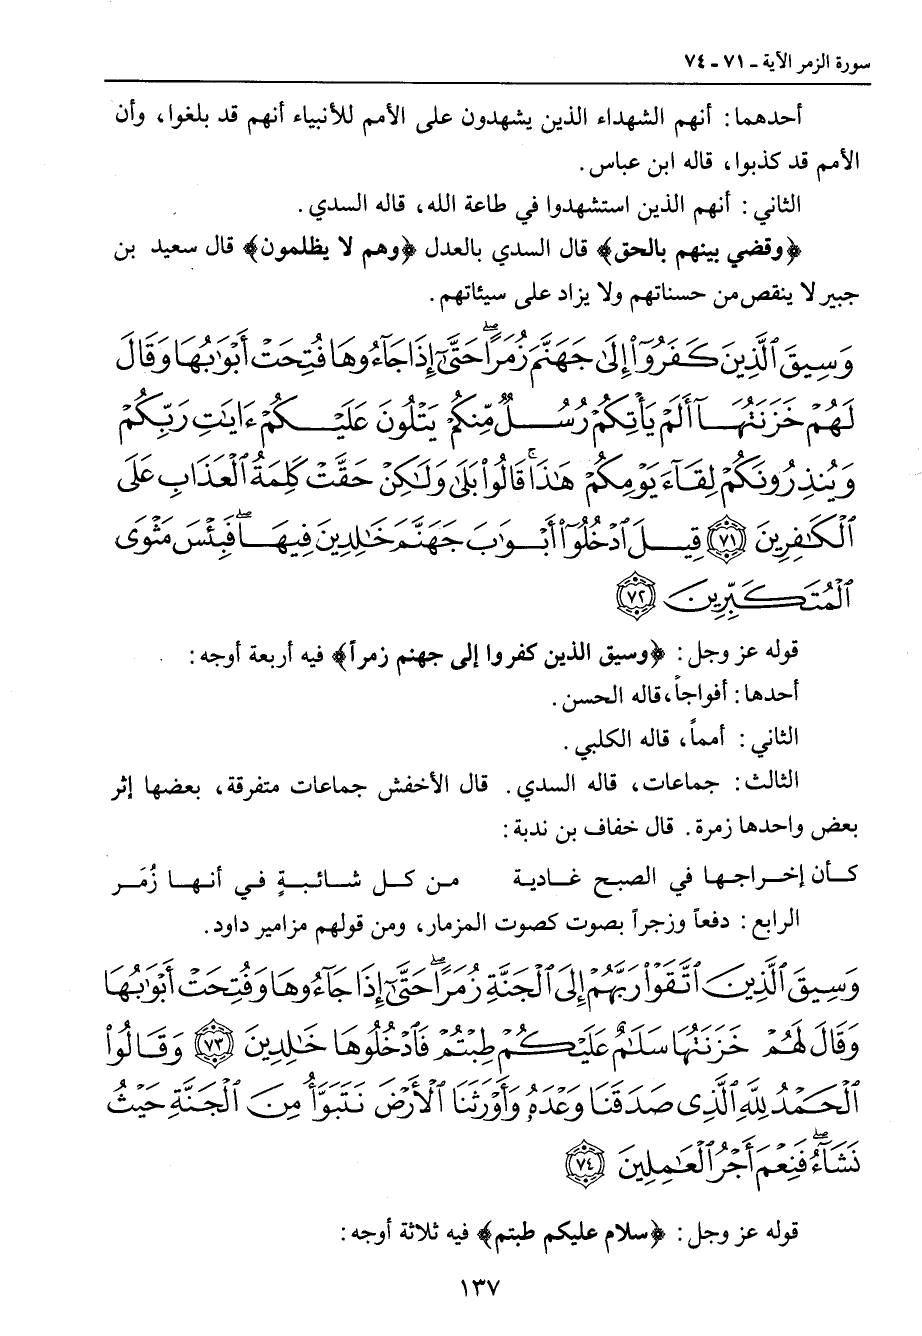 سورة الزمر الآية - ٧١ - ٧٤
أحدهما: أنهم الشهداء الذين يشهدون على الأمم للأنبياء أنهم قد بلغوا، وأن
الأمم قد كذبوا، قاله ابن عباس.
الثاني: أنهم الذين استشهدوا في طاعة الله، قاله السدي.
﴿وقضي بينهم بالحق﴾ قال السدي بالعدل ﴿وهم لا يظلمون﴾ قال سعيد بن
جبير لا ينقص من حسناتهم ولا يزاد على سيئاتهم.
وَسِيقَ ٱلَّذِينَ كَفَرُوٓا۟ إِلَىٰ جَهَنَّمَ زُمَرًا ۖ حَتَّىٰٓ إِذَا جَآءُوهَا فُتِحَتْ أَبْوَٰبُهَا وَقَالَ
لَهُمْ خَزَنَتُهَآ أَلَمْ يَأْتِكُمْ رُسُلٌ مِّنكُمْ يَتْلُونَ عَلَيْكُمْ ءَايَٰتِ رَبِّكُمْ
وَيُنذِرُونَكُمْ لِقَآءَ يَوْمِكُمْ هَٰذَا ۚ قَالُوا۟ بَلَىٰ وَلَٰكِنْ حَقَّتْ كَلِمَةُ ٱلْعَذَابِ عَلَى
ٱلْكَٰفِرِينَ ﴿٧١﴾ قِيلَ ٱدْخُلُوٓا۟ أَبْوَٰبَ جَهَنَّمَ خَٰلِدِينَ فِيهَا ۖ فَبِئْسَ مَثْوَى
ٱلْمُتَكَبِّرِينَ ﴿٧٢﴾
قوله عز وجل: ﴿وسيق الذين كفروا إلى جهنم زمراً﴾ فيه أربعة أوجه:
أحدها: أفواجاً، قاله الحسن.
الثاني: أمماً، قاله الكلبي.
الثالث: جماعات، قاله السدي. قال الأخفش جماعات متفرقة، بعضها إثر
بعض واحدها زمرة. قال خفاف بن ندبة:
كأن إخراجها في الصبح غادية من كل شائبةٍ في أنها زُمَر
الرابع: دفعاً وزجراً بصوت كصوت المزمار، ومن قولهم مزامير داود.
وَسِيقَ ٱلَّذِينَ ٱتَّقَوْا۟ رَبَّهُمْ إِلَى ٱلْجَنَّةِ زُمَرًا ۖ حَتَّىٰٓ إِذَا جَآءُوهَا وَفُتِحَتْ أَبْوَٰبُهَا
وَقَالَ لَهُمْ خَزَنَتُهَا سَلَٰمٌ عَلَيْكُمْ طِبْتُمْ فَٱدْخُلُوهَا خَٰلِدِينَ ﴿٧٣﴾ وَقَالُوا۟
ٱلْحَمْدُ لِلَّهِ ٱلَّذِى صَدَقَنَا وَعْدَهُۥ وَأَوْرَثَنَا ٱلْأَرْضَ نَتَبَوَّأُ مِنَ ٱلْجَنَّةِ حَيْثُ
نَشَآءُ ۖ فَنِعْمَ أَجْرُ ٱلْعَٰمِلِينَ ﴿٧٤﴾
قوله عز وجل: ﴿سلام عليكم طبتم﴾ فيه ثلاثة أوجه:
١٣٧